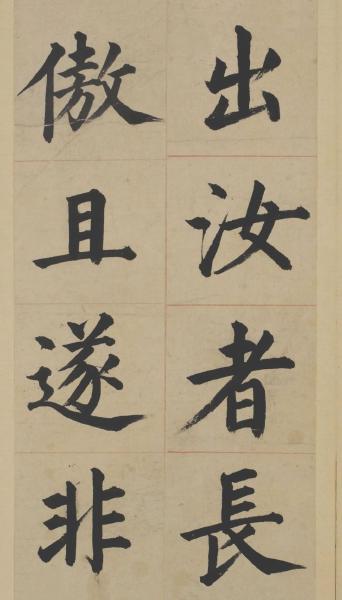 出汝者長
傲且遂非